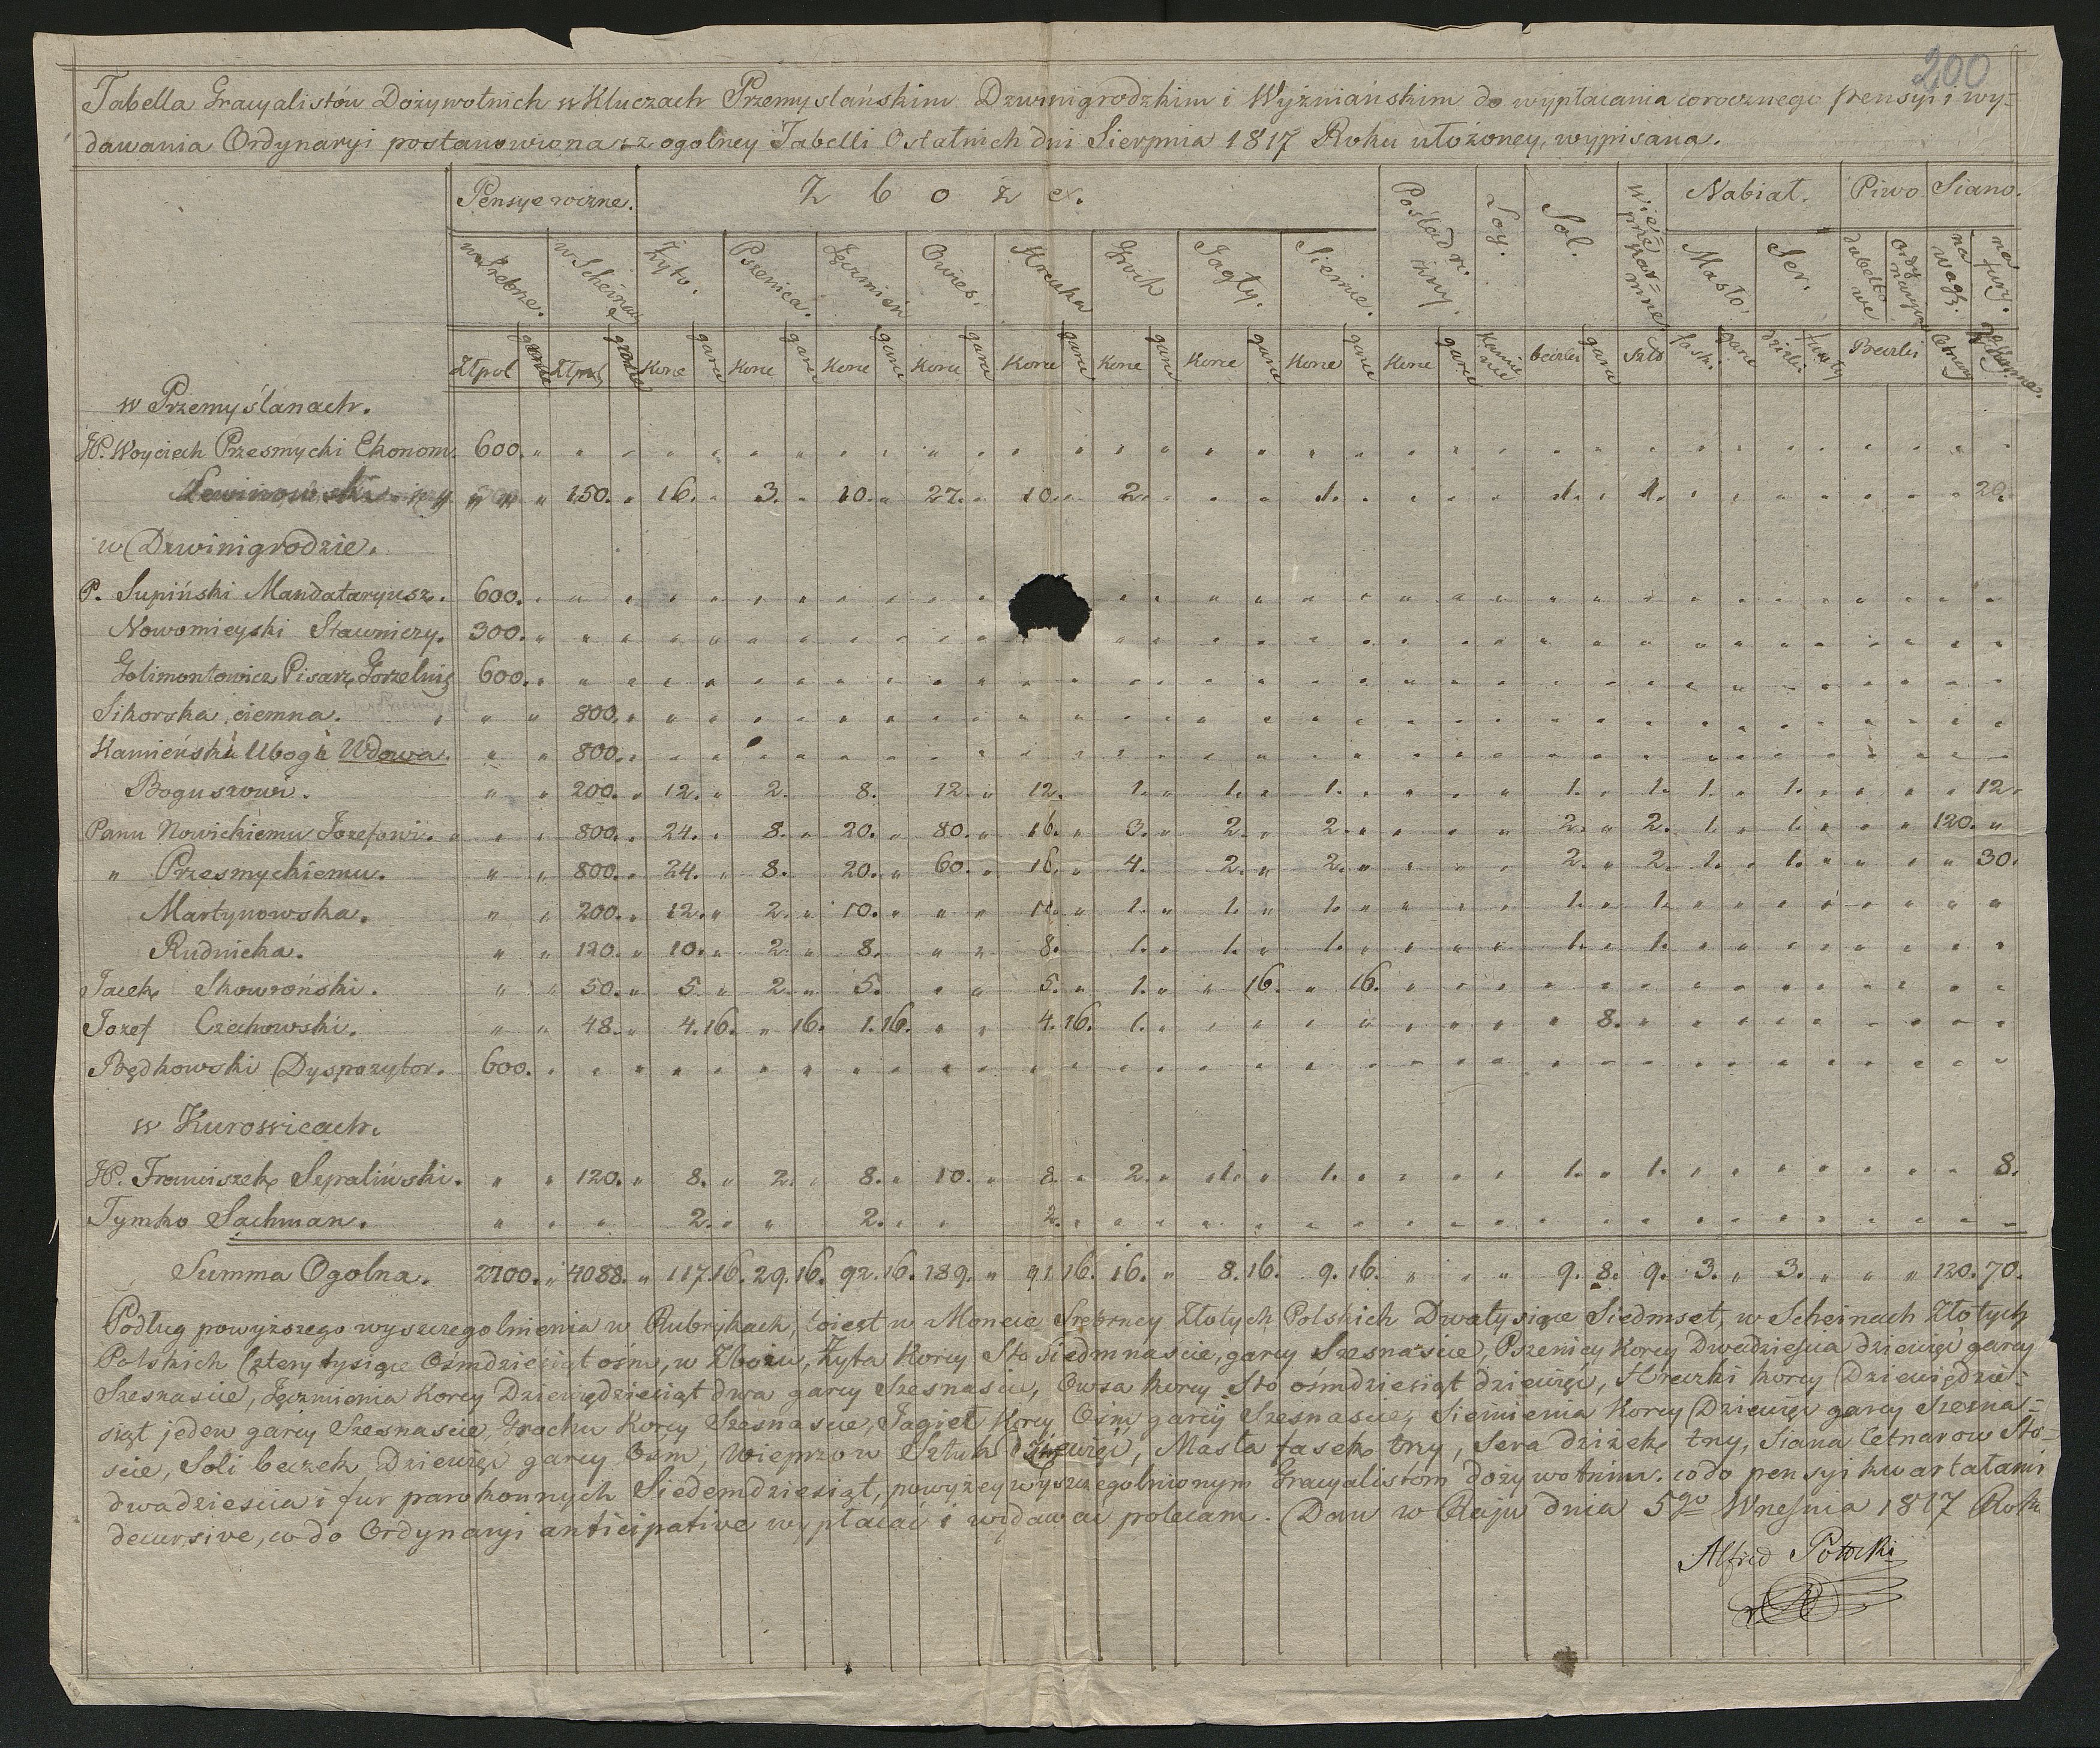 200
Tabella Gracyalistów Dożywotnich w Kluczach Przemyslańskim Dzwinigrodzkim i Wyżniańskim do wypłacania corocznego pensyi i wy=
dawania Ordynaryi postanowiona z ogolney Tabelli Ostatnich dni Sierpnia 1817 Roku ułożoney, wypisana.
Pensye roczne. Z b o ż e. Poślad ri Łoy. Sol. Wieprze karmne Nabiał. Piwo Siano.
w Srebrze. w Scheinach Żyto. Pszenica. Jęczmień Owies. Hreczka Groch Jagły. Siemie. Masło. Ser. dubeltowe ordynaryine na wagę. na fury.
Złpol Złpol Korce garce Korce garce Korce garce Korce garce Korce garce Korce garce Korce garce Korce garce Korce garce Kamienie beczki garce Szto fask. garce dziżki funty Beczki Cetnary
w Przemyślanach.
JP. Woyciech Przesmycki Ekonom. 600. " " " " " " " " " " " " " " " " " " " " " " " " " " " "
" " " 150. " 16. " 3. " 10. " 27. " 10. " 2. " " " 1. " " " " 1. " 1. " " " " " " " 20.
w Dzwinigrodzie.
P. Supiński Mandataryusz. 600. " " " " " " " " " " " " " " " " " " " " " " " " " "
Nowomieyski Stawniczy. 300. " " " " " " " " " " " " " " " " " " " " " " " " " "
Golimontowicz Pisarz Gorzelnię 600. " " " " " " " " " " " " " " " " " " " " " " " " " "
Sikorska ciemna. " " 800. " " " " " " " " " " " " " " " " " " " " " " " "
Kamieńska Uboga Wdowa. " " 800. " " " " " " " " " " " " " " " " " " " " " " " "
Boguszowi. " " 200. " 12. " 2. 8. 12. " 12. 1. " 1. " 1. " " " " 1. " 1. 1. " 1. " " " " 12.
Panu Nowickiemu Jozefowi. " " 800. " 24. " 8. " 20. " 80. " 16. " 3. " 2. " 2. " " " " 2. " 2. 1. " 1. " " " 120. "
" Przesmyckiemu. " " 800. " 24. " 8. 20. " 60. " 16. " 4. 2. " 2. " " " " 2. " 2. 1. " 1. " " " " 30.
Martynowska. " " 200. " 12. " 2. " 10. " " " 10. " 1. " 1. " 1. " " " " 1. " 1. " " " " " " " "
Rudnicka. " " 120. " 10. " 2. " 8. " " 8. 1. " 1. " 1. " " " " 1. " 1. " " " " " " " "
Jacek Skowroński. " " 50. " 5. " 2. " 5. " " 5. " 1. " " 16. " 16. " " " " " " " " " " " " " "
Jozef Czechowski. " " 48. " 4. 16. " 16. 1. 16. " " 4. 16. 1. " " " " " " " " " 8. " " " " " " " " "
Będkowski Dyspozytor. 600. " " " " " " " " " " " " " " " " " " " " " " " " " "
w Kurowicach.
JP. Franciszek Sepraliński. " " 120. " 8. " 2. " 8. " 10. " 8. " 2. " 1. " 1. " " " " 1. " 1. " " " " " " " 8.
Tymko Sachman. " " " 2. " " 2. " " 2. " " " " " " " " " " " " " " " " "
Summa Ogolna. 2700. " 4088. " 117. 16. 29. 16. 92. 16. 189. " 91. 16. 16. " 8. 16. 9. 16. " " " 9. 8. 9. 3. " 3. " " " 120. 70.
Podług powyższego wyszczegolnienia w Rubrykach, toiest w Moncie Srebrney Złotych Polskich Dwatysiące Siedmset, w Scheinach Złotych
Polskich Cztery tysiące Ośmdziesiąt ośm, w Zbożu, Żyta Korcy Sto siedmnascie, garcy Szesnaście, Pszenicy Korcy Dwadzieścia dziewięć garcy
Szesnascie, Jęczmienia Korcy Dziewięćdziesiąt dwa garcy Szesnaście, Owsa korcy Sto ośmdziesiąt dziewięć, Hreczki korcy Dziewiędzie=
siąt jeden garcy Szesnascie, Grochu Korcy Szesnascie, Jagieł Korcy Ośm garcy Szesnascie, Siemienia Korcy Dziewięć garcy Szesna=
scie, Soli beczek Dziewięć garcy Osm, Wieprzow Sztuk dziewięć, Masła fasek trzy, Sera dziżek trzy, Siana Cetnarow Sto=
dwadziescia i fur parokonnych Siedemdziesiąt, powyżey wyszczegolnionym Gracyalistom dożywotnim. co do pensyi kwartałami
decursive, co do Ordynaryi anticipative wypłacać i wydawać polecam. Dan w Raju dnia 5go Września 1817 Roku
Alfred Potocki